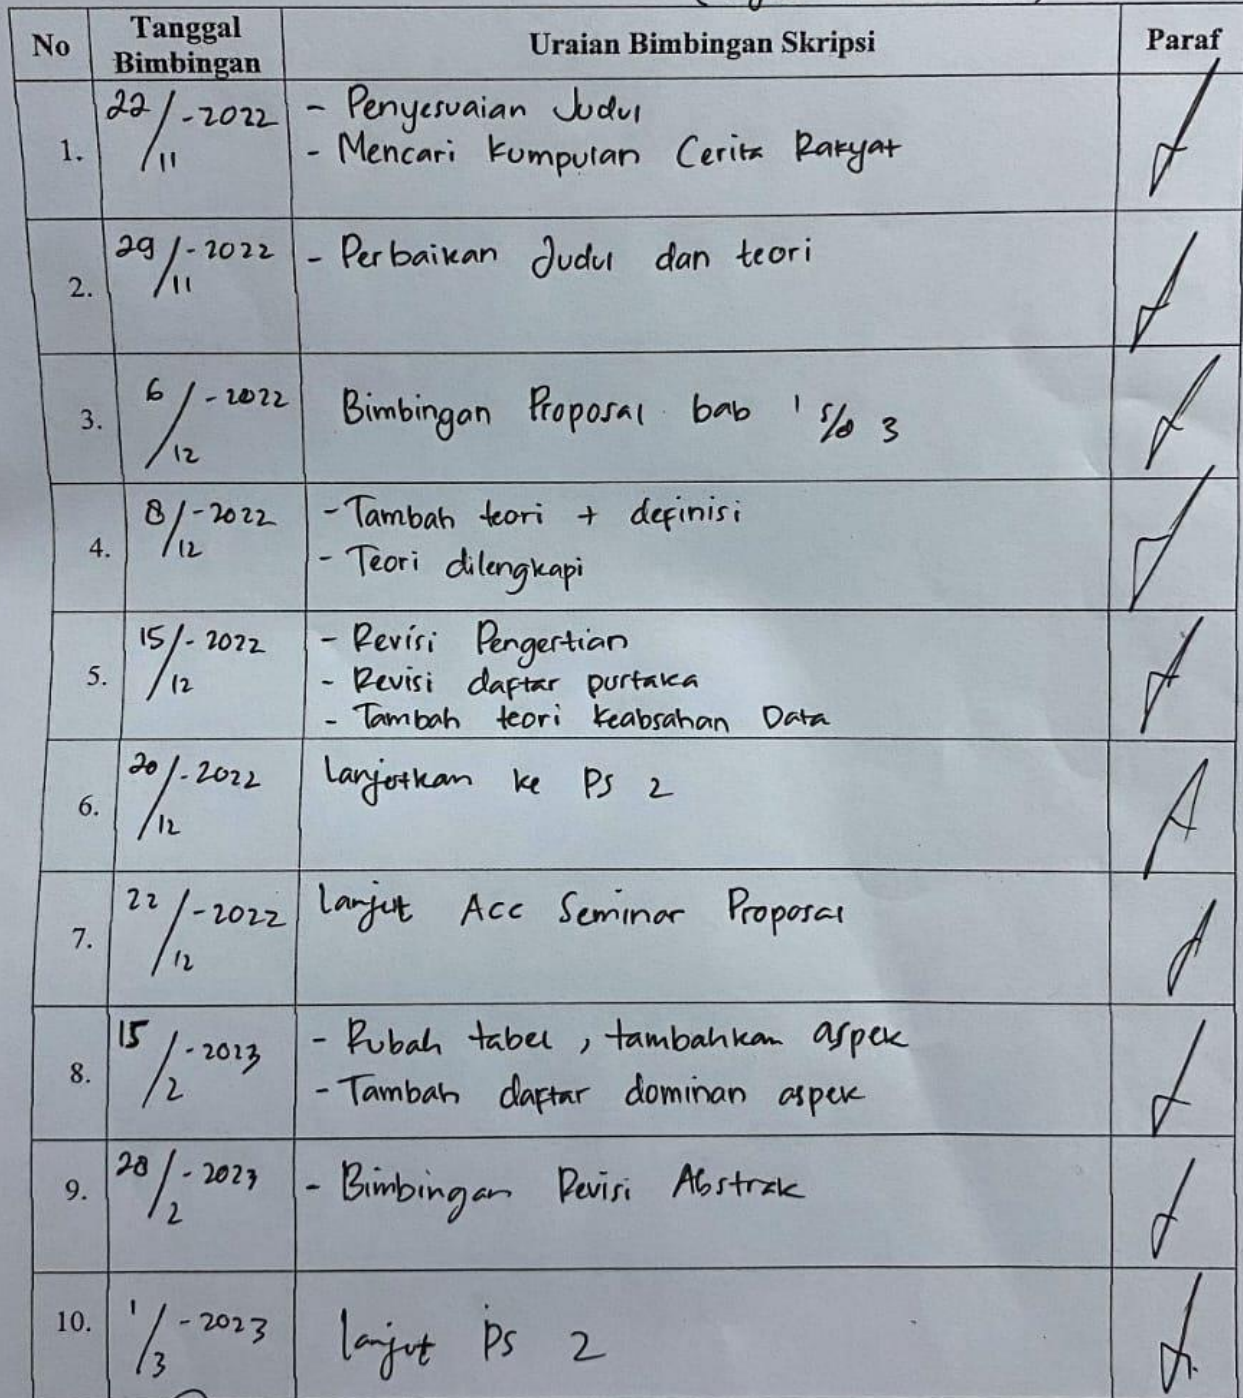 No
Tanggal Bimbingan
Uraian Bimbingan Skripsi
Paraf
1.
22/11-2022
- Penyesuaian Judul
- Mencari Kumpulan Cerita Rakyat
2.
29/11-2022
- Perbaikan Judul dan teori
3.
6/12-2022
Bimbingan Proposal bab 1 s/d 3
4.
8/12-2022
- Tambah teori + definisi
- Teori dilengkapi
5.
15/12-2022
- Revisi Pengertian
- Revisi daftar pustaka
- Tambah teori Keabsahan Data
6.
20/12-2022
lanjutkan ke PS 2
7.
22/12-2022
lanjut Acc Seminar Proposal
8.
15/2-2023
- Rubah tabel, tambahkan aspek
- Tambah daftar dominan aspek
9.
28/2-2023
- Bimbingan Revisi Abstrak
10.
1/3-2023
lanjut PS 2